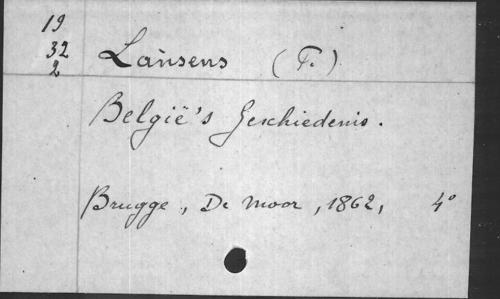 19
32
2
Lansens (F.)
België's Geschiedenis.
Brugge, De Moor, 1862, 4°